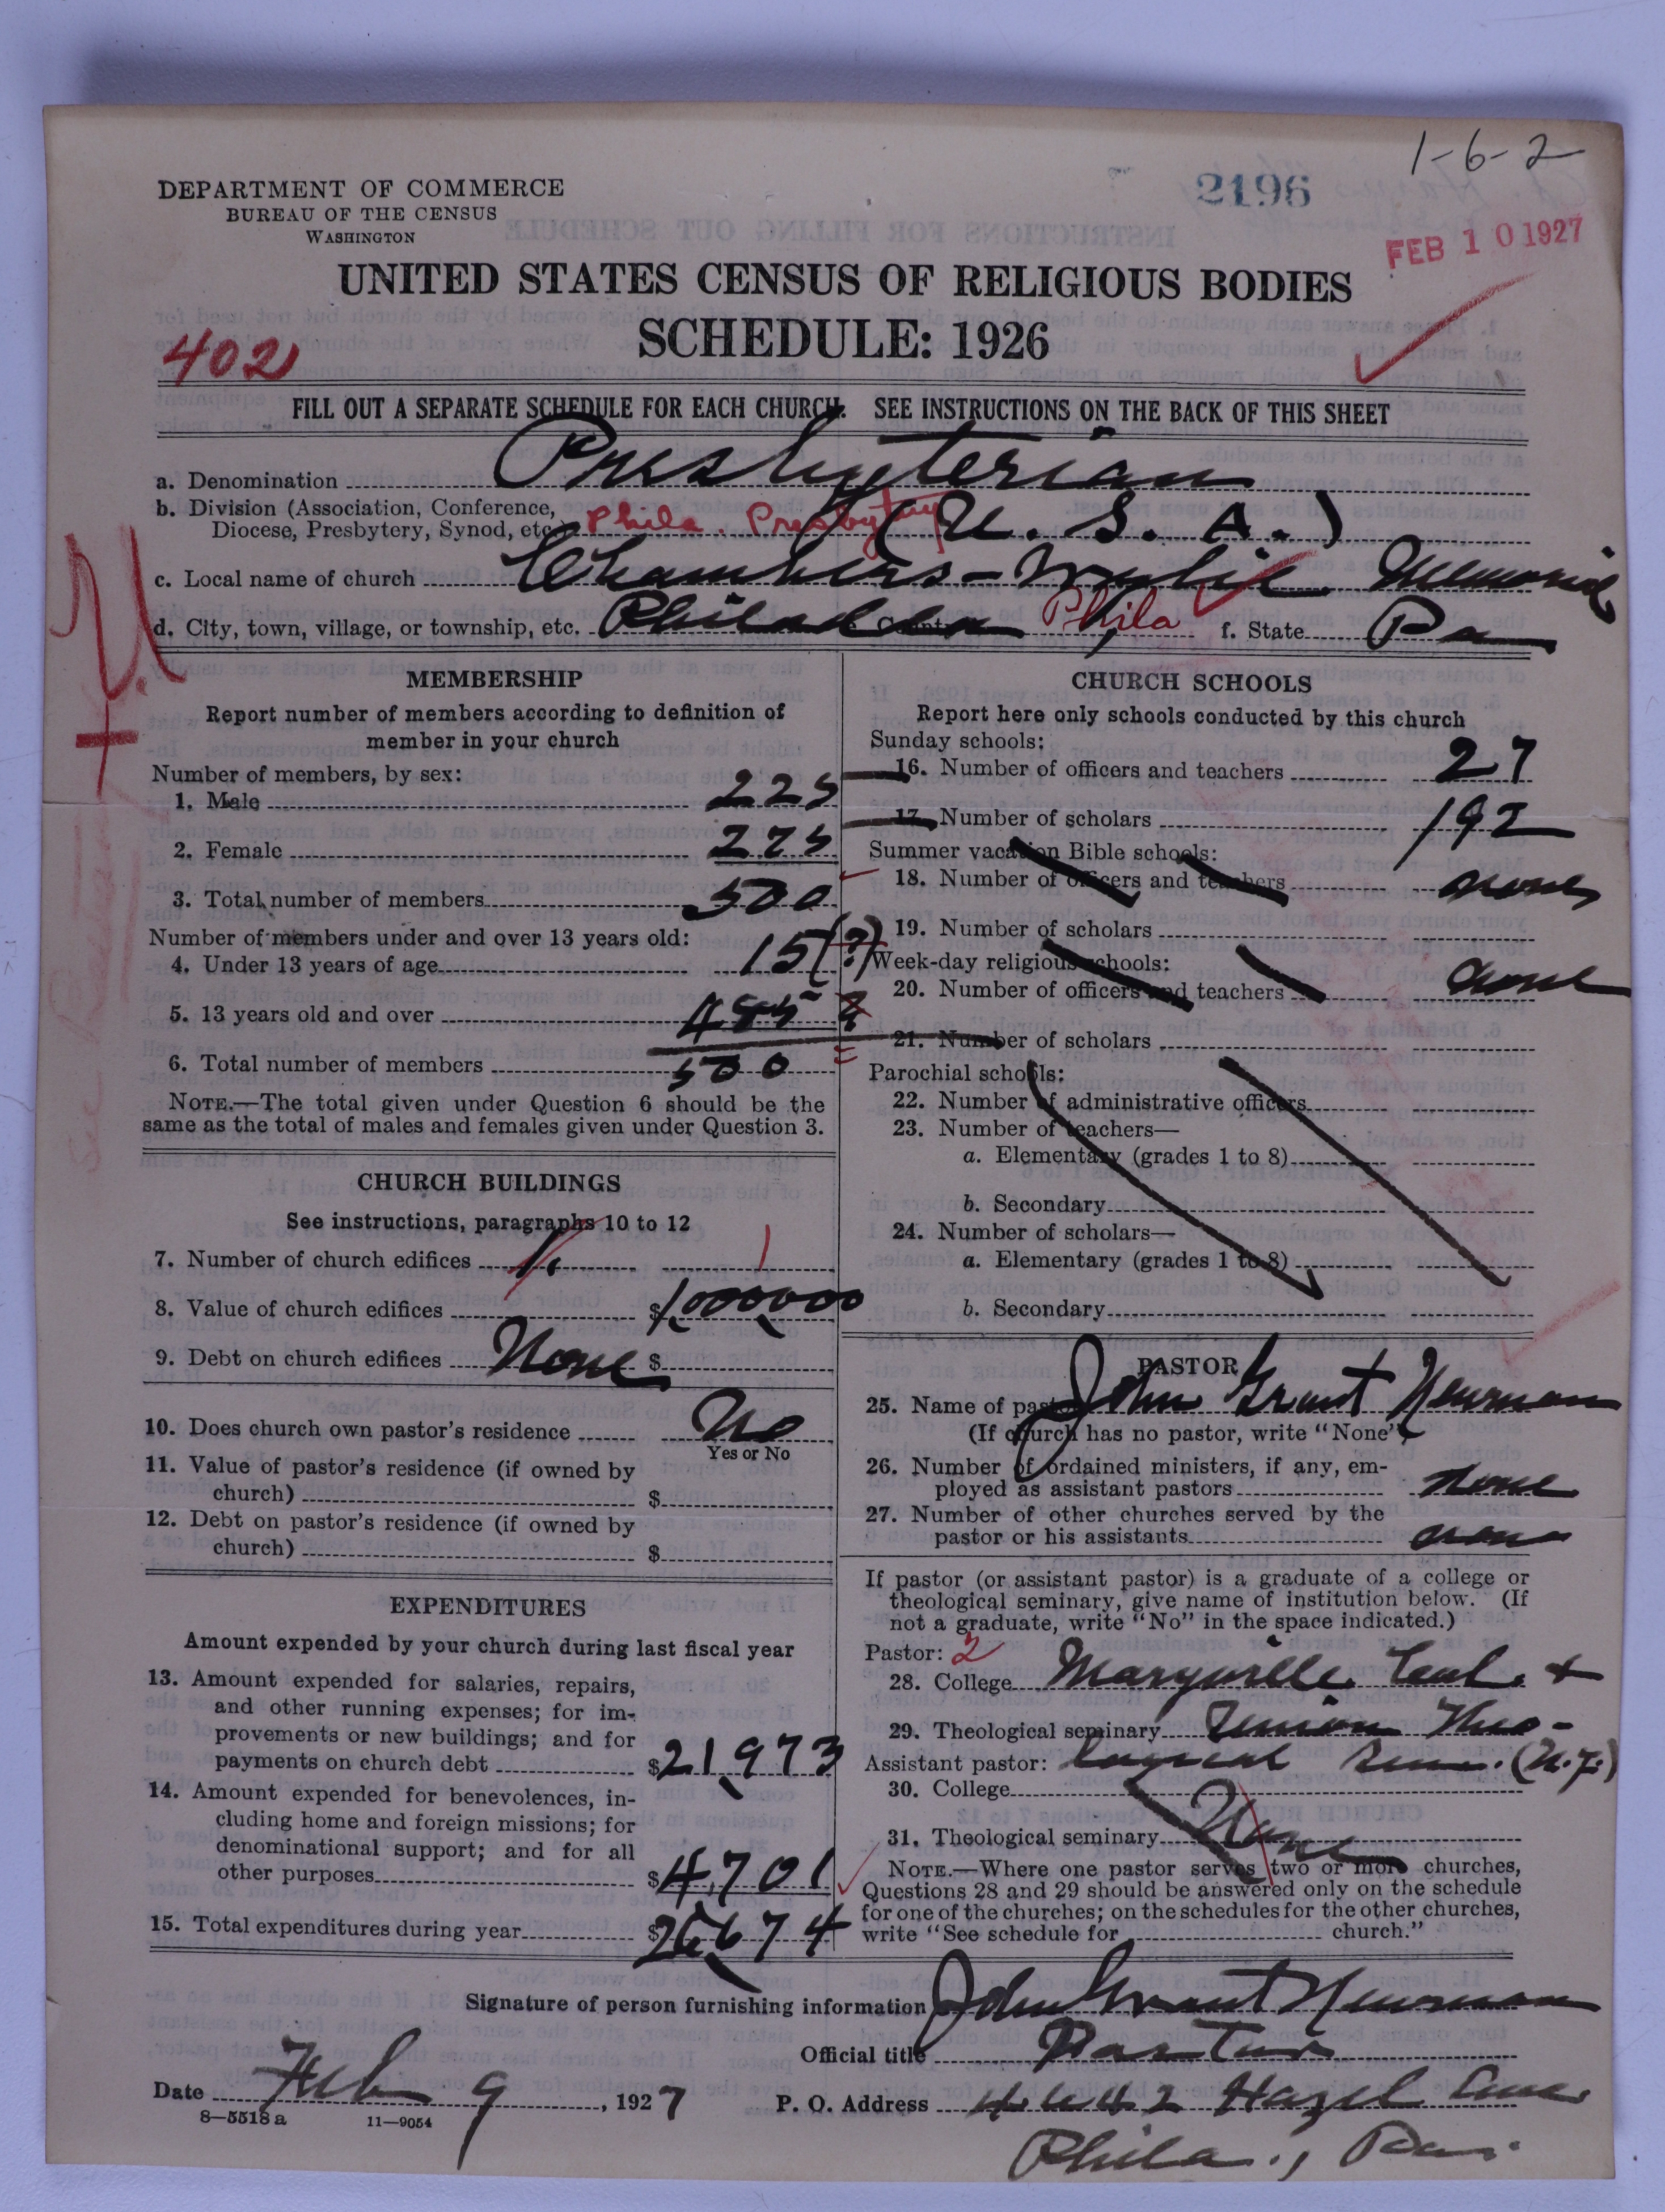 1-6-2
DEPARTMENT OF COMMERCE
BUREAU OF THE CENSUS
WASHINGTON
2196
FEB 10 1927
UNITED STATES CENSUS OF RELIGIOUS BODIES
SCHEDULE: 1926
402
FILL OUT A SEPARATE SCHEDULE FOR EACH CHURCH. SEE INSTRUCTIONS ON THE BACK OF THIS SHEET
a. Denomination Presbyterian
b. Division (Association, Conference,
Diocese, Presbytery, Synod, etc.) Phila. Presbytery (U. S. A.)
c. Local name of church Chambers-Wylie Memorial
d. City, town, village, or township, etc. Philadelphia County Phila f. State Pa
MEMBERSHIP
Report number of members according to definition of
member in your church
Number of members, by sex:
1. Male 225
2. Female 275
3. Total number of members 500
Number of members under and over 13 years old:
4. Under 13 years of age 15 (?)
5. 13 years old and over 485
6. Total number of members 500
NOTE.—The total given under Question 6 should be the
same as the total of males and females given under Question 3.
CHURCH BUILDINGS
See instructions, paragraphs 10 to 12
7. Number of church edifices 1 1
8. Value of church edifices $1,000,000
9. Debt on church edifices None $
10. Does church own pastor's residence No
Yes or No
11. Value of pastor's residence (if owned by
church) $
12. Debt on pastor's residence (if owned by
church) $
EXPENDITURES
Amount expended by your church during last fiscal year
13. Amount expended for salaries, repairs,
and other running expenses; for im-
provements or new buildings; and for
payments on church debt $21,973
14. Amount expended for benevolences, in-
cluding home and foreign missions; for
denominational support; and for all
other purposes $4,701
15. Total expenditures during year $26,674
CHURCH SCHOOLS
Report here only schools conducted by this church
Sunday schools:
16. Number of officers and teachers 27
17. Number of scholars 192
Summer vacation Bible schools:
18. Number of officers and teachers none
19. Number of scholars
Week-day religious schools:
20. Number of officers and teachers none
21. Number of scholars
Parochial schools:
22. Number of administrative officers
23. Number of teachers—
a. Elementary (grades 1 to 8)
b. Secondary
24. Number of scholars—
a. Elementary (grades 1 to 8)
b. Secondary
PASTOR
25. Name of pastor John Grant Newman
(If church has no pastor, write "None")
26. Number of ordained ministers, if any, em-
ployed as assistant pastors none
27. Number of other churches served by the
pastor or his assistants none
If pastor (or assistant pastor) is a graduate of a college or
theological seminary, give name of institution below. (If
not a graduate, write "No" in the space indicated.)
Pastor: 2
28. College Maryville Coll. +
29. Theological seminary Union Theo-
Assistant pastor: logical Sem. (N.Y.)
30. College
31. Theological seminary None
NOTE.—Where one pastor serves two or more churches,
Questions 28 and 29 should be answered only on the schedule
for one of the churches; on the schedules for the other churches,
write "See schedule for church."
Signature of person furnishing information John Grant Newman
Official title Pastor
Date Feb 9, 1927 P. O. Address 4642 Hazel Ave
8-5518 a 11-9054
Phila., Pa.